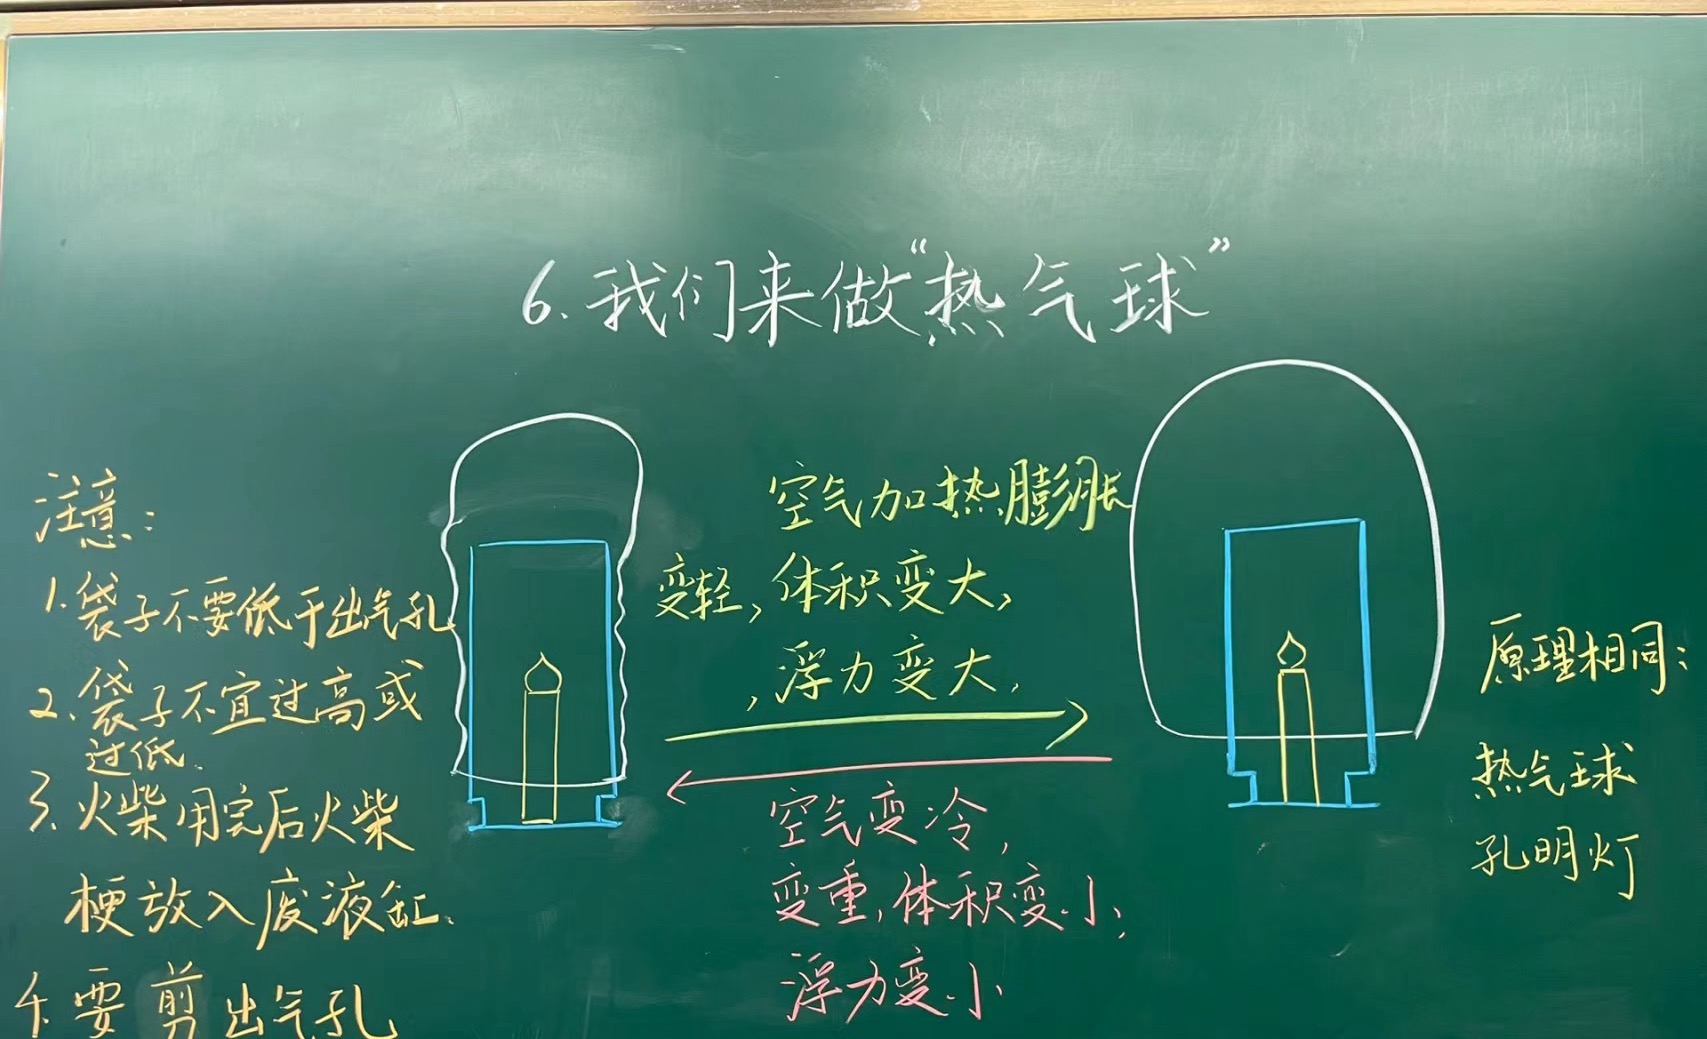 6.我们来做“热气球”
注意:
1.袋子不要低于出气孔
2.袋子不宜过高或
过低.
3.火柴用完后火柴
梗放入废液缸.
4.要剪出气孔
空气加热膨胀
变轻,体积变大,
,浮力变大,
空气变冷,
变重,体积变小,
浮力变小
原理相同:
热气球
孔明灯